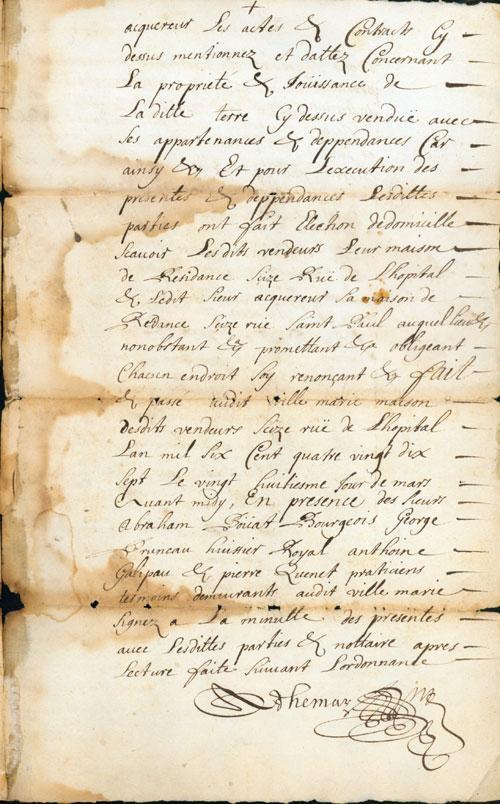 acquereur Les actes & Contracts Cy
dessus mentionnez et dattez Concernant
La proprieté & Joüissance de
La ditte terre Cy dessus vendüe avec
ses appartenances & deppendances Car
ainsy &a Et pour L'execution des
presentes & deppendances Lesdittes
parties ont fait Election dedomicille
scavoir Lesdits vendeurs Leur maison
de Residance scize Rüe de Lhopital
& Ledit sieur acquereur sa maison de
Redance scize rüe saint Paul auquel Lieu &a
nonobstant &a promettant &a obligeant
Chacun endroit soy renonçant &a fait
& passé audit ville marie maison
desdits vendeurs scize rüe de Lhopital
Lan mil six Cent quatre vingt dix
sept Le vingt huitiesme Jour de mars
avant midy, En presence des sieurs
Abraham Boüat Bourgeois George
Pruneau huissier Royal anthoine
Galipau & pierre Quenet praticiens
tesmoins demeurants audit ville marie
signez a La minutte des presentes
avec Lesdittes parties & nottaire apres
Lecture faite suivant Lordonnance
Adhemar